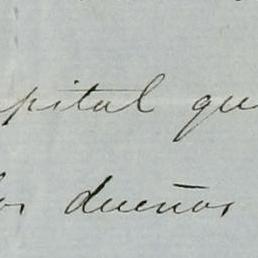 pital qu
os dueños